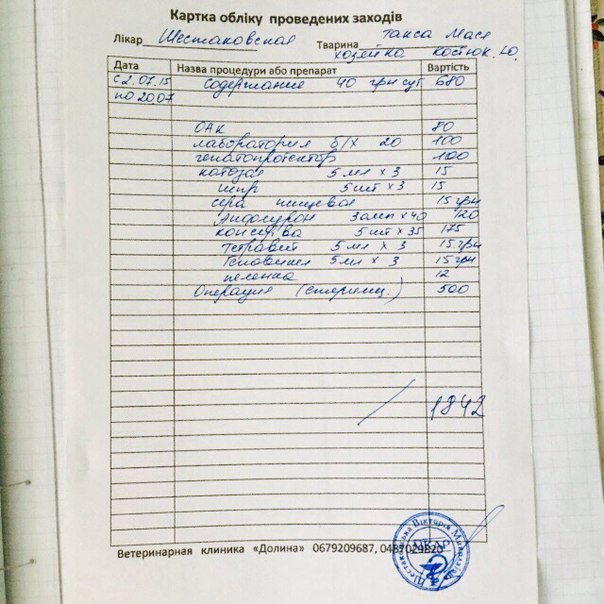 Картка обліку проведених заходів
Лікар Шестаковская Тварина такса Мася
хозяйка Костюк. Ю.
Дата Назва процедури або препарат Вартість
с 2.07.15 Содержание 40 грн сут 680
по 20.07
ОАК 80
лаборатория б/х 20 100
гепатопротектор 100
катозал 5 мл х 3 15
шпр 5 шт х 3 15
сера пищевая 15 грн
3 амп х 40 120
консерва 5 шт х 35 175
тетравит 5 мл х 3 15 грн
5 мл х 3 15 грн
пеленка 12
Операция (стерилиз.) 500
1842
Ветеринарная клиника «Долина» 0679209687, 0487029820